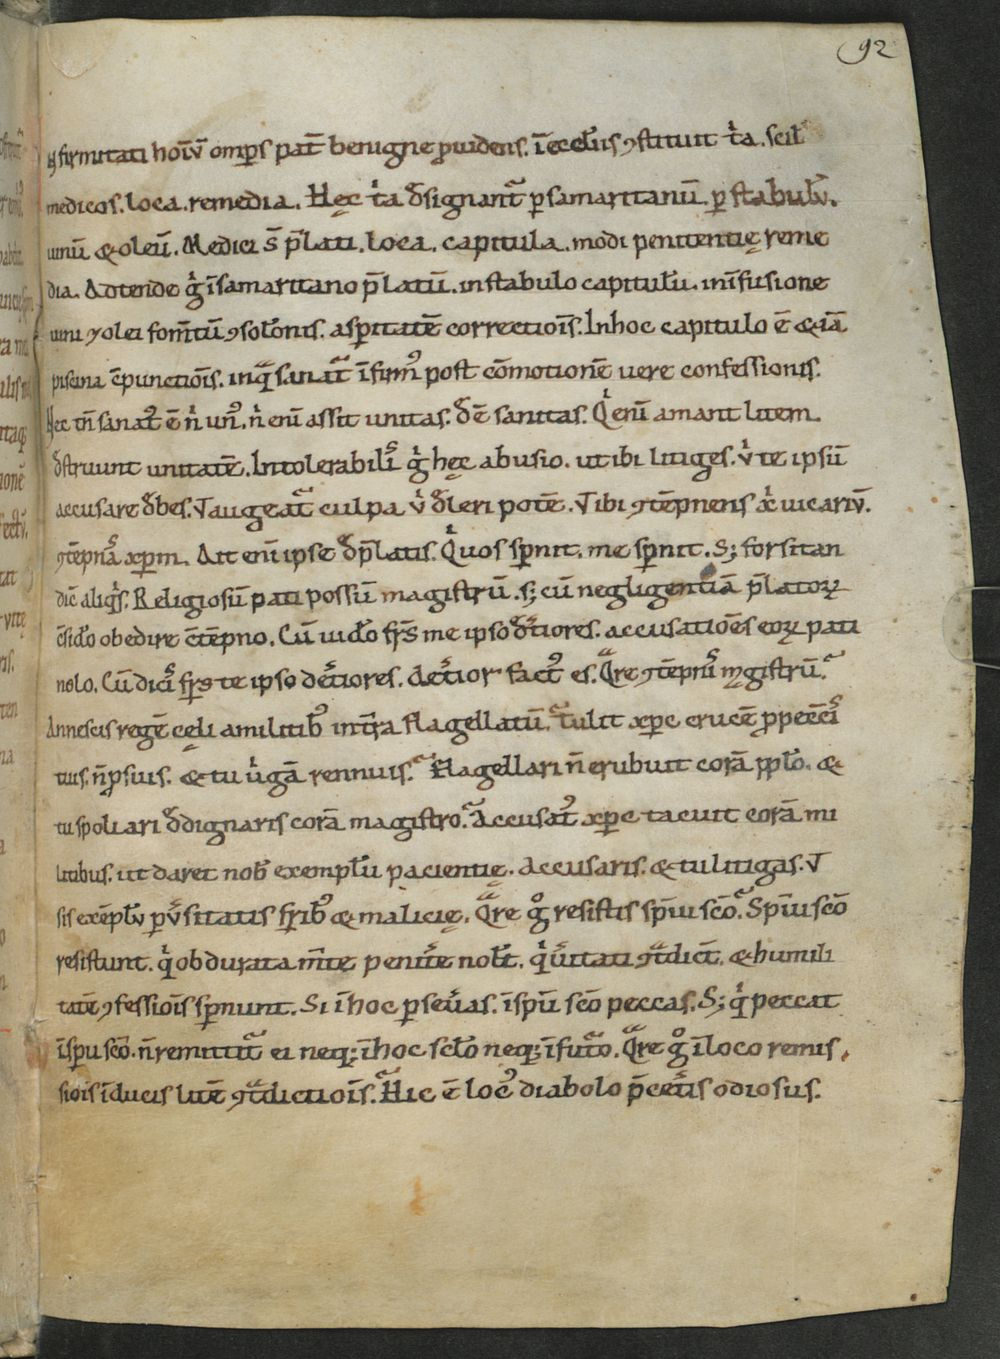 92
infirmitati hoīū omp̄s pat̄ benigne p̄uidens. ī eccl̄iis ꝯstituit t̍a. scil̄
medicos. loca. remedia. Hęc t̍a d̄signant᷑ p samaritanū. p stabulū.
uinū & oleū. Medici s̄ p̄lati. loca. capitula. modi penitentię reme
dia. Adtende g̍ ī samaritano p̄latū. in stabulo capitulū. in īfusione
uini ⁊ olei fom̄tū ꝯsol̄onis. aspitatē correctioīs. In hoc capitulo ē & iā
piscina cōpunctioīs. in q̄ sanat᷑ īfirm᷒ post cōmotionē uere confessionis.
Hęc tn̄ sanat᷒ ē n̍ un᷒. n̍ eni assit unitas. d̄ē sanitas. Q̍ enī amant litem
d̄struunt unitatē. Intolerabilī g̍ hęc abusio. ut ibi litiges. u̍ te ipsū
accusare d̄bes. ⁊ augeat᷑ culpa u̍ d̄leri potē. ⁊ ibi ꝯtēpnens x̄ uicariū.
ꝯtēpnas xp̄m. Ait enī ipse d̄ p̄latis. Q̍ uos sp̄nit. me sp̄nit. S; forsitan
dic̄ aliq̍s. Religiosū pati possū magistrū. s; cū negligentiā p̄latoꝝ
ꝯsid̄o obedire cōtēpno. Cū uid̄o fr̄s me ipso d̄tiores. accusatioēs eoꝝ pati
nolo. Cū dicis fr̄s te ipso det̄iores. det̄ior fact᷒ es. Q̄re ꝯtēpnis magistrū.
An nescis regē cęli a militib᷒ int̄ra flagellatū. tulit xp̄c crucē p̄ peccīs
tuis. n̄ p̄ suis. & tu u̍gā rennuis. Flagellari n̄ erubuit corā pp̄lo. &
tu spoliari d̄dignaris corā magistro. Accusat᷒ xp̄c tacuit corā mi
litibus. ut daret nob̄ exemplū pacientię. Accusaris. & tu litigas. ⁊
sis exēplū puersitatis fr̄ib᷒ & malicię. Q̄re g̊ resistis sp̄iu sc̄o. Sp̄iu sc̄o
resistunt. q̍ obdurata m̄te penit̄e nol̄t. q̍ u̍itati ꝯt̄dic̄t. & humili
tatē ꝯfessioīs sp̄nunt. Si ī hoc pseūas. ī sp̄u sc̄o peccas. S; q̍ peccat
ī sp̄u sc̄o. n̄ remittit᷑ ei neq; ī hoc scl̄o neq; ī fut᷑o. Q̄re g̊ ī loco remis
sioīs īducis litē ꝯt̄dictioīs. Hic ē loc᷒ diabolo p̄ cet̄is odiosus.